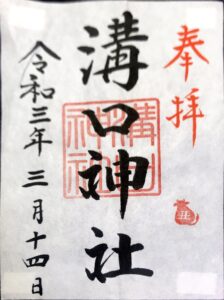 奉拝
溝口神社
溝口神社
令和三年三月十四日
丑